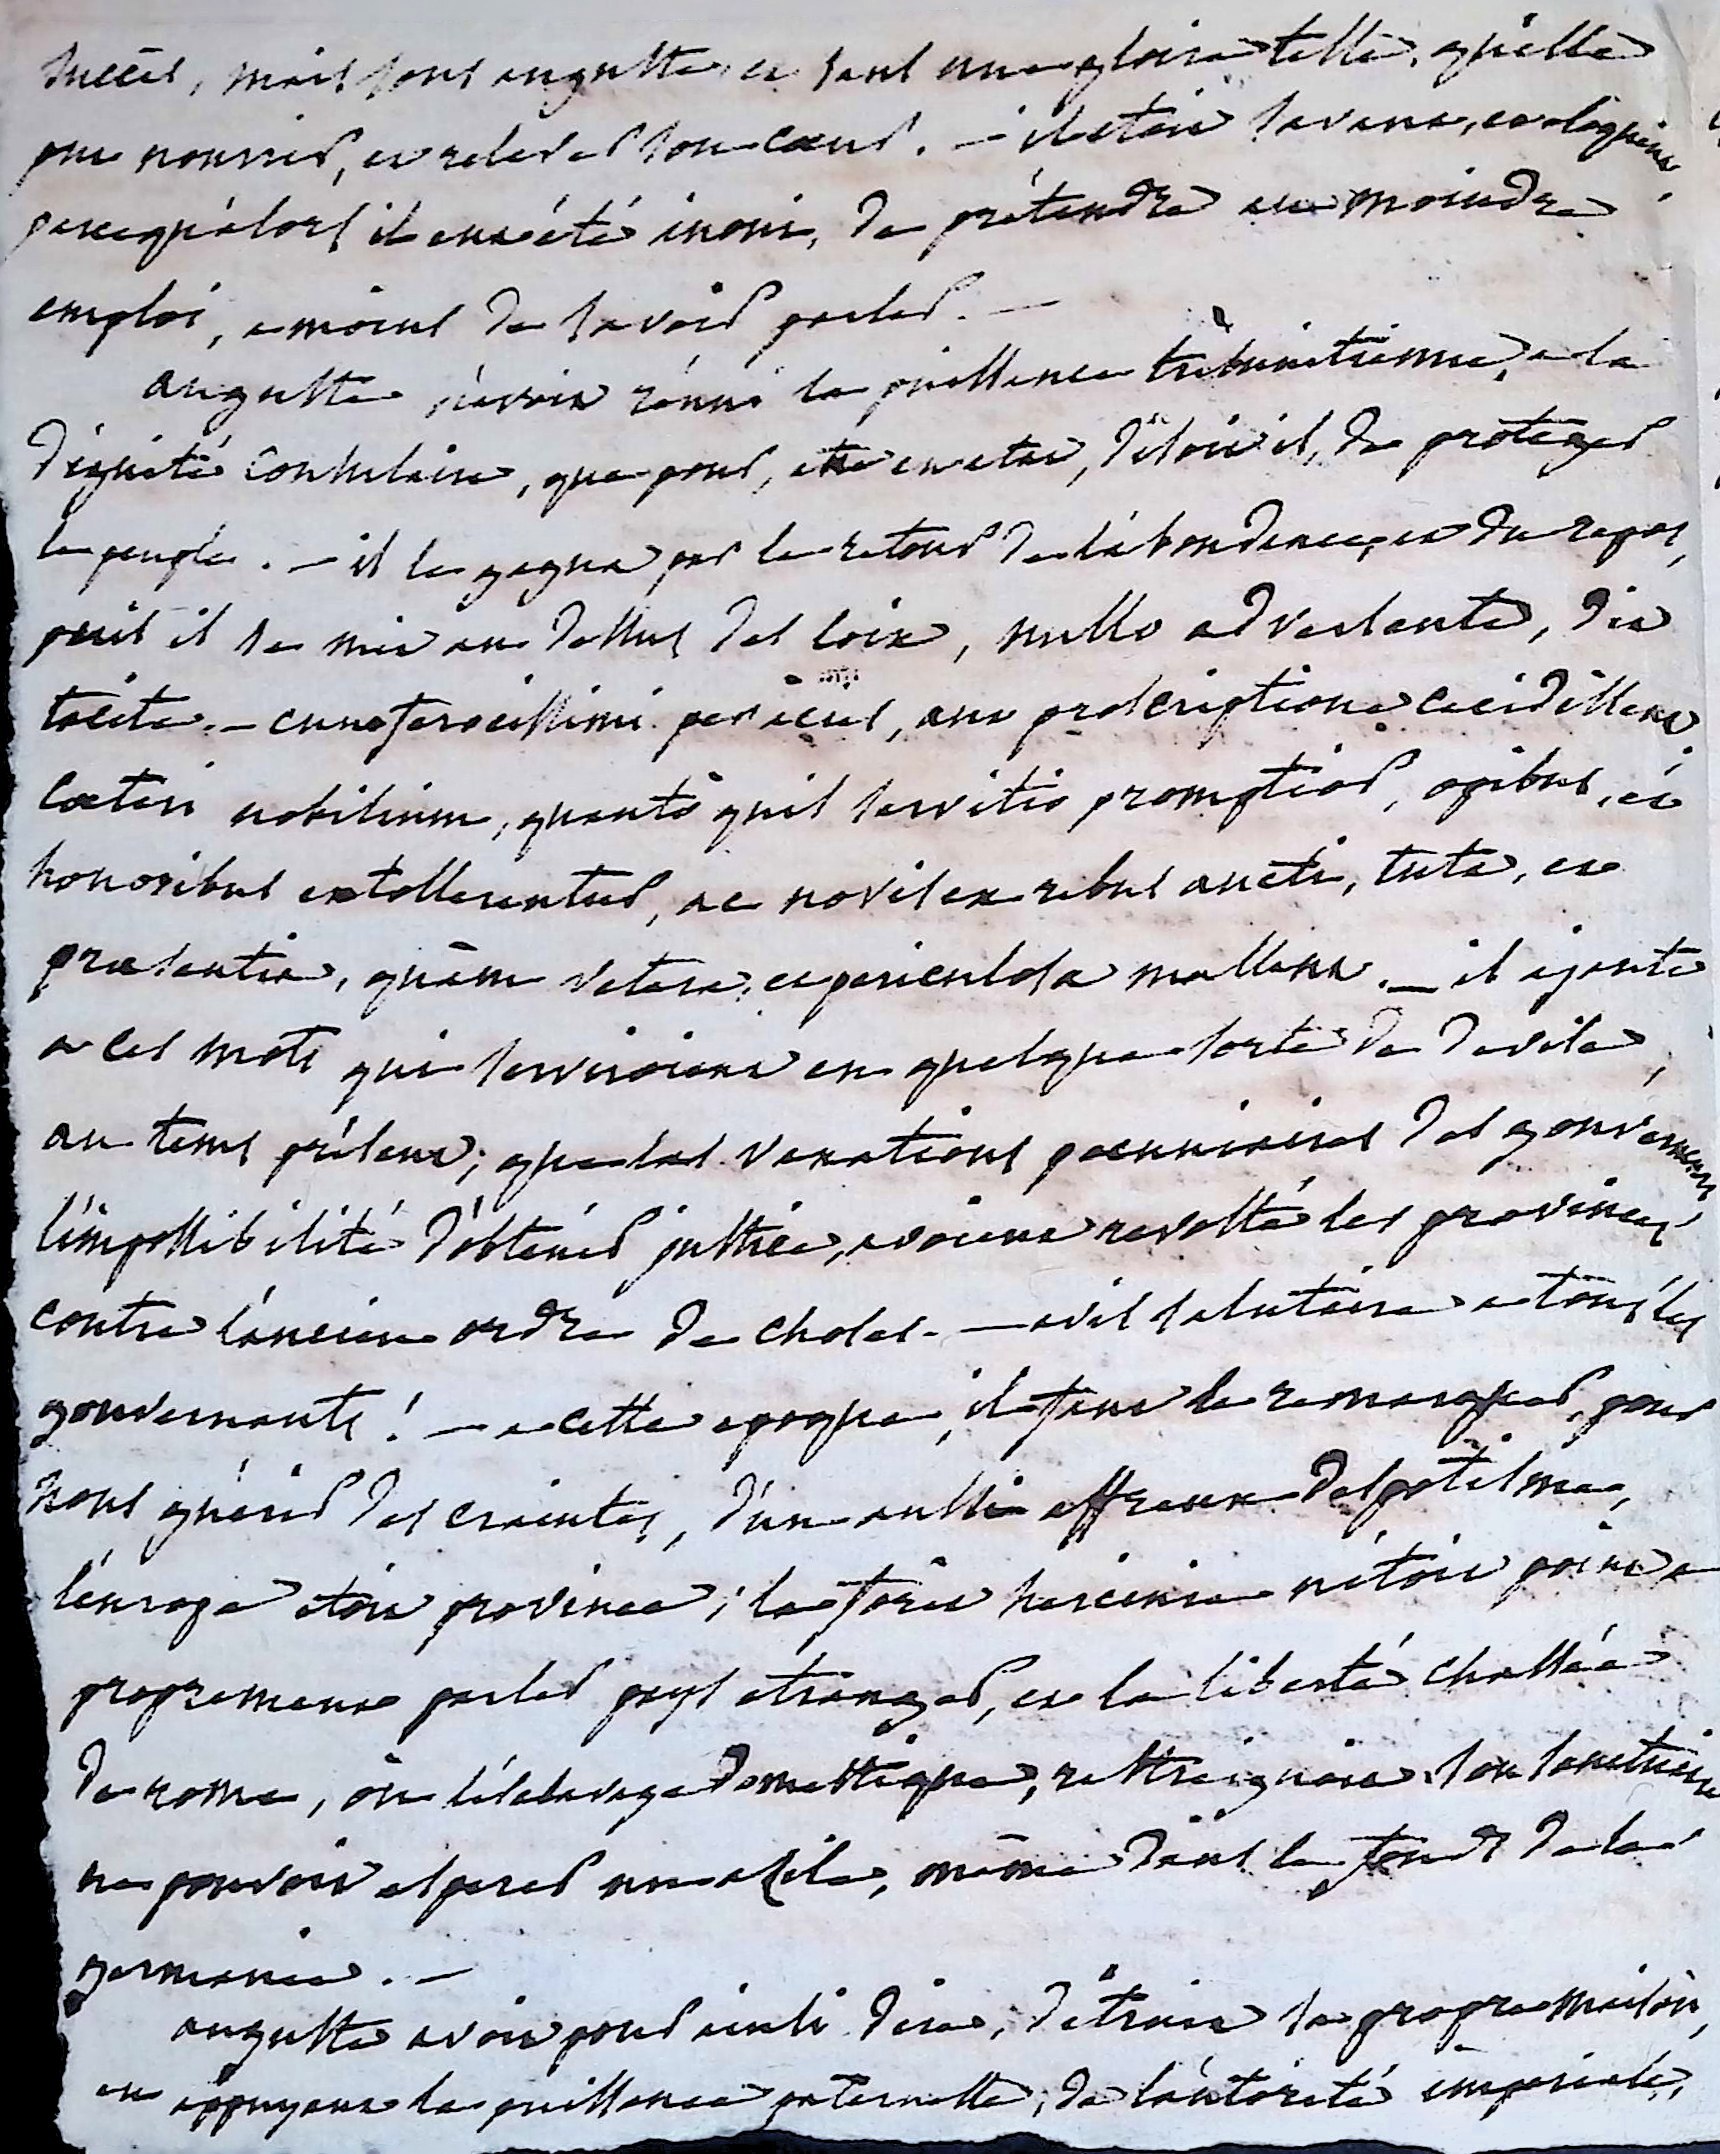 succès, mais sous auguste, et sous une gloire telle, qu'elle
put nourrir, et relever son cœur. — il étoit savant, et eloquent,
parcequ'alors il eut été inoui, de prétendre au moindre
emploi, a moins de savoir parler. —
auguste n'avoit réuni la puissance tribunitienne, a la
dignité consulaire, que pour, etre en etat, disoit il, de protéger
le peuple. — il le gagna par le retour de l'abondance, et du repos,
puis il se mit au dessus des loix, nullo adversante, dit
tacite. — cum ferocissimi per acies, aut proscriptione cecidissent
cœteri nobilium, quantò quis servitio promptior, opibus, et
honoribus extollerentur, ac novis ex rebus aucti, tuta, et
præsentia, quàm vetera, et periculosa mallent. — il ajoute
a ces mots qui serviroient en quelque sorte de devise,
au tems présent; que les vexations pecuniaires des gouvernemens,
l'impossibilité d'obtenir justice, avoient revolté les provinces
contre l'ancien ordre de choses. — avis salutaire a tous les
gouvernants! — a cette epoque, il faut le remarquer, pour
nous guérir des craintes, d'un aussi affreux despotisme,
l'europe etoit province; la forêt hercinie n'étoit point a
proprement parler pays etranger, et la liberté chassée
de rome, où l'esclavage domestique, restraignoit son sanctuaire
ne pouvoit esperer un asile, même dans le fond de la
germanie. —
auguste avoit pour ainsi dire, détruit sa propre maison,
en appuyant la puissance paternelle, de l'autorité imperiale,